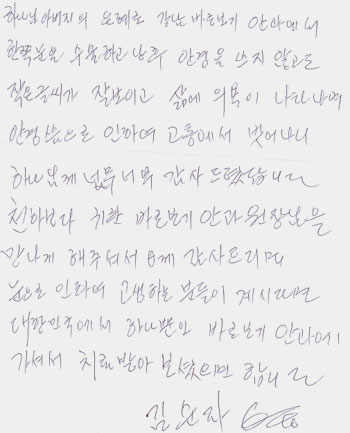 하나님 아버지의 은혜로 강남 바른보기 안과에서
한쪽눈을 수술하고 난후 안경을 쓰지 않고도
작은글씨가 잘보이고 삶에 의욕이 나타나며
안경씀으로 인하여 고통에서 벗어나니
하나님께 너무너무 감사 드렸답니다
천하보다 귀한 바른보기 안과 원장님을
만나게 해주셔서 감사드리며
눈으로 인하여 고생하는 분들이 계시다면
대한민국에서 하나뿐인 바른보기 안과에
가셔서 치료받아 보셨으면 합니다
김 순자